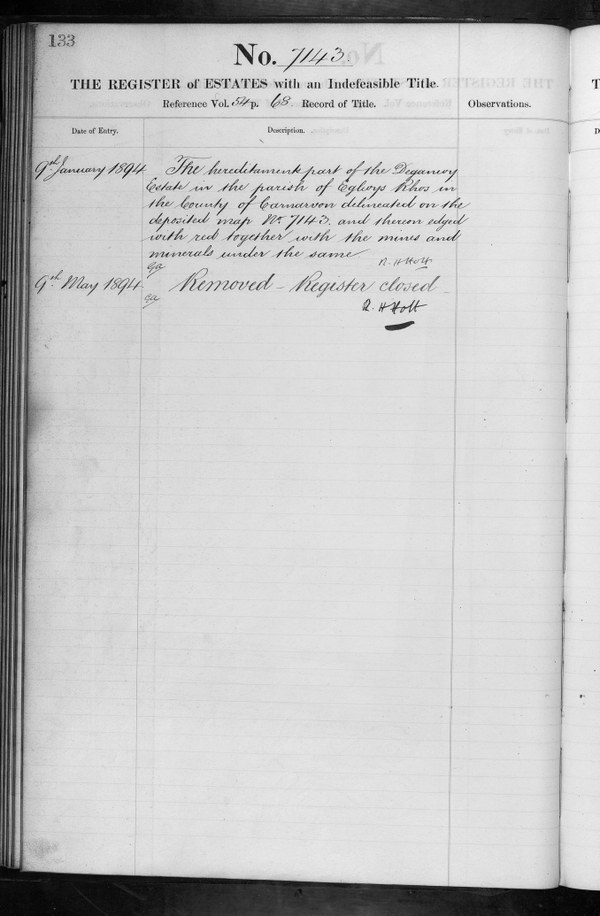 133
No. 7143.
THE REGISTER of ESTATES with an Indefeasible Title.
Reference Vol. 54 p. 68 Record of Title.
Observations.
Date of Entry.
Description.
9th January 1894
The hereditaments part of the Deganwy
Estate in the parish of Eglwys Rhos in
the County of Carnarvon delineated on the
deposited map No. 7143. and thereon edged
with red together with the mines and
minerals under the same
R. H Holt
9th May 1894.
Removed – Register closed
R. H Holt